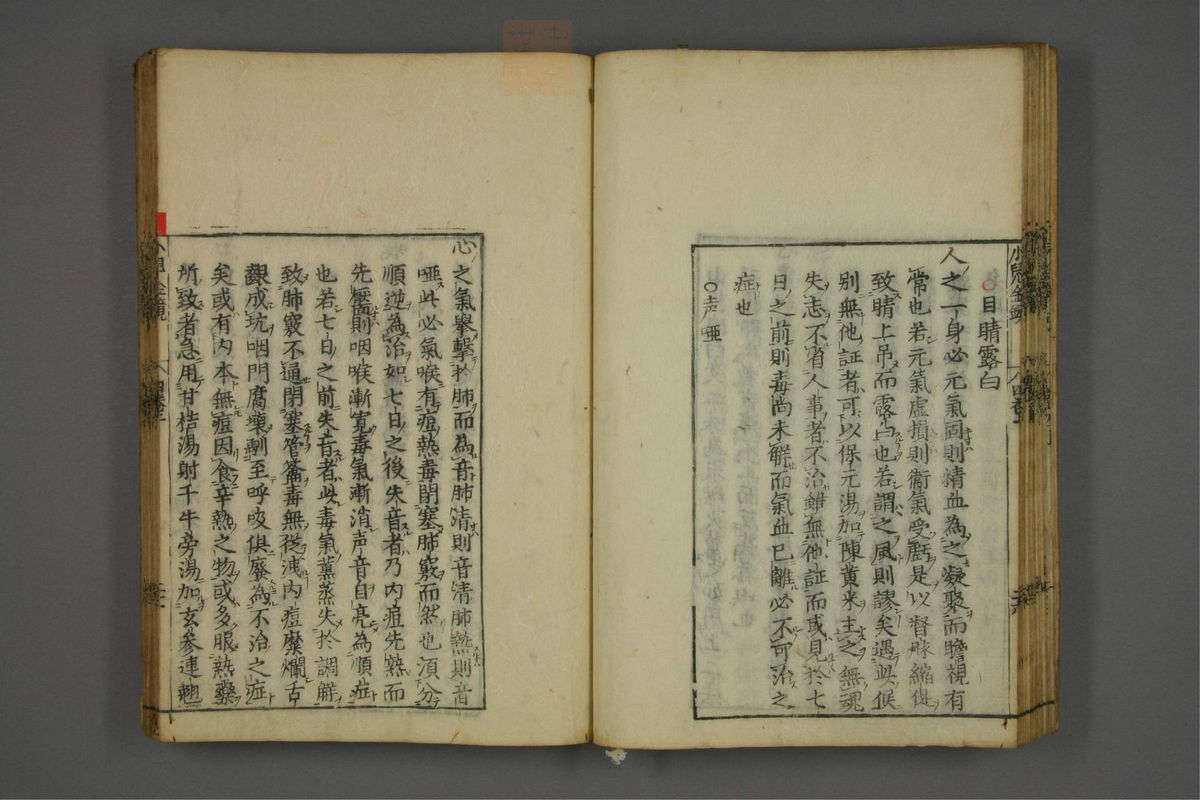 ○目睛露白
人之一身必元氣固則精血為之凝聚而瞻視有
常也若元氣虛損則衛氣受虧是以督脉縮促
致睛上吊而露白也若謂之風則謬矣遇此候
別無他証者可以保元湯加陳黄米主之無魂
失志不省人事者不治雖無他証而或見於七
日之前則毒尚未解而氣血已離必不可治之
症也
○声啞
心之氣舉擊於肺而為音肺清則音清肺熱則音
啞此必氣喉有痘熱毒閉塞肺竅而然也須分
順逆為治如七日之後失音者乃内痘先熟而
先靨則咽喉漸寬毒氣漸消声音自亮為順症
也若七日之前失音者此毒氣薫蒸失於調解
致肺竅不通閉塞管籥毒無從洩内痘糜爛舌
成坑咽門腐壞馴至呼吸俱廢為不治之症
矣或有内本無痘因食辛熱之物或多服熱藥
所致者急用甘桔湯射干牛旁湯加玄參連翹